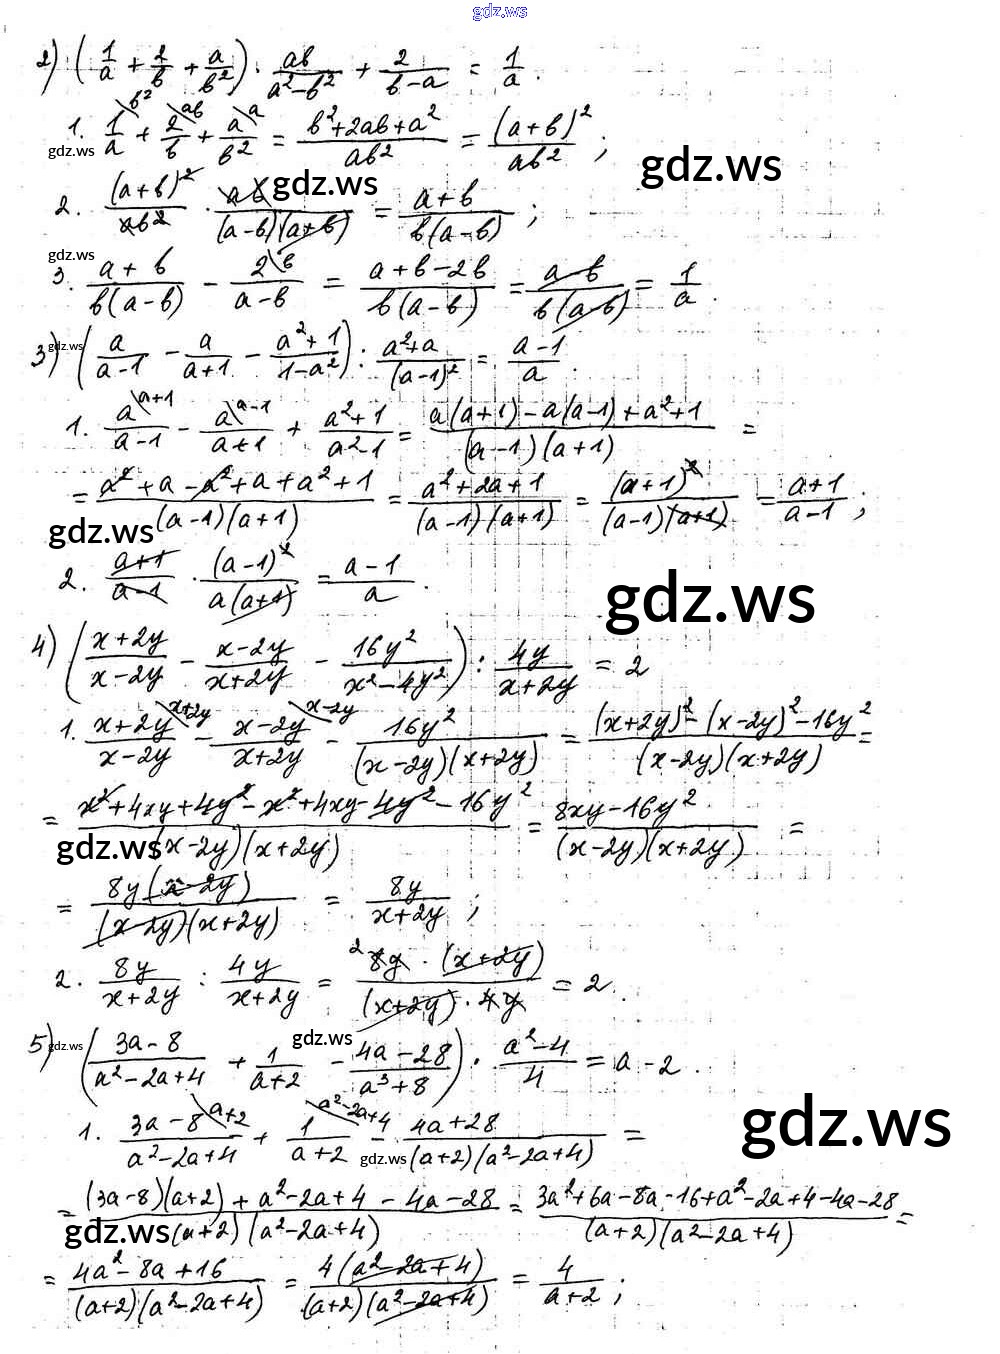 gdz.ws
2) (1/a + 2/b + a/b²) · ab/(a²-b²) + 2/(b-a) = 1/a.
1. 1/a \b² + 2/b \ab + a/b² \a = (b²+2ab+a²)/(ab²) = (a+b)²/(ab²);
gdz.ws gdz.ws
2. (a+b)²/(ab²) · ab/((a-b)(a+b)) = (a+b)/(b(a-b));
gdz.ws
gdz.ws
3. (a+b)/(b(a-b)) - 2/(a-b) \b = (a+b-2b)/(b(a-b)) = (a-b)/(b(a-b)) = 1/a.
3) (a/(a-1) - a/(a+1) - (a²+1)/(1-a²)) : (a²+a)/(a-1)² = (a-1)/a.
gdz.ws
1. a/(a-1) \a+1 - a/(a+1) \a-1 + (a²+1)/(a²-1) = (a(a+1)-a(a-1)+a²+1)/((a-1)(a+1)) =
= (a²+a-a²+a+a²+1)/((a-1)(a+1)) = (a²+2a+1)/((a-1)(a+1)) = (a+1)²/((a-1)(a+1)) = (a+1)/(a-1);
gdz.ws
2. (a+1)/(a-1) · (a-1)²/(a(a+1)) = (a-1)/a.
gdz.ws
4) ((x+2y)/(x-2y) - (x-2y)/(x+2y) - 16y²/(x²-4y²)) : 4y/(x+2y) = 2
1. (x+2y)/(x-2y) \x+2y - (x-2y)/(x+2y) \x-2y - 16y²/((x-2y)(x+2y)) = ((x+2y)²-(x-2y)²-16y²)/((x-2y)(x+2y)) =
= (x²+4xy+4y²-x²+4xy-4y²-16y²)/((x-2y)(x+2y)) = (8xy-16y²)/((x-2y)(x+2y)) =
gdz.ws
= 8y(x-2y)/((x-2y)(x+2y)) = 8y/(x+2y);
2. 8y/(x+2y) : 4y/(x+2y) = ²8y·(x+2y)/((x+2y)·4y) = 2.
gdz.ws
5) ((3a-8)/(a²-2a+4) + 1/(a+2) - (4a-28)/(a³+8)) · (a²-4)/4 = a-2.
gdz.ws
gdz.ws
1. (3a-8)/(a²-2a+4) \a+2 + 1/(a+2) \a²-2a+4 - (4a+28)/((a+2)(a²-2a+4)) =
gdz.ws
= ((3a-8)(a+2)+a²-2a+4-4a-28)/((a+2)(a²-2a+4)) = (3a²+6a-8a-16+a²-2a+4-4a-28)/((a+2)(a²-2a+4)) =
gdz.ws
= (4a²-8a+16)/((a+2)(a²-2a+4)) = 4(a²-2a+4)/((a+2)(a²-2a+4)) = 4/(a+2);